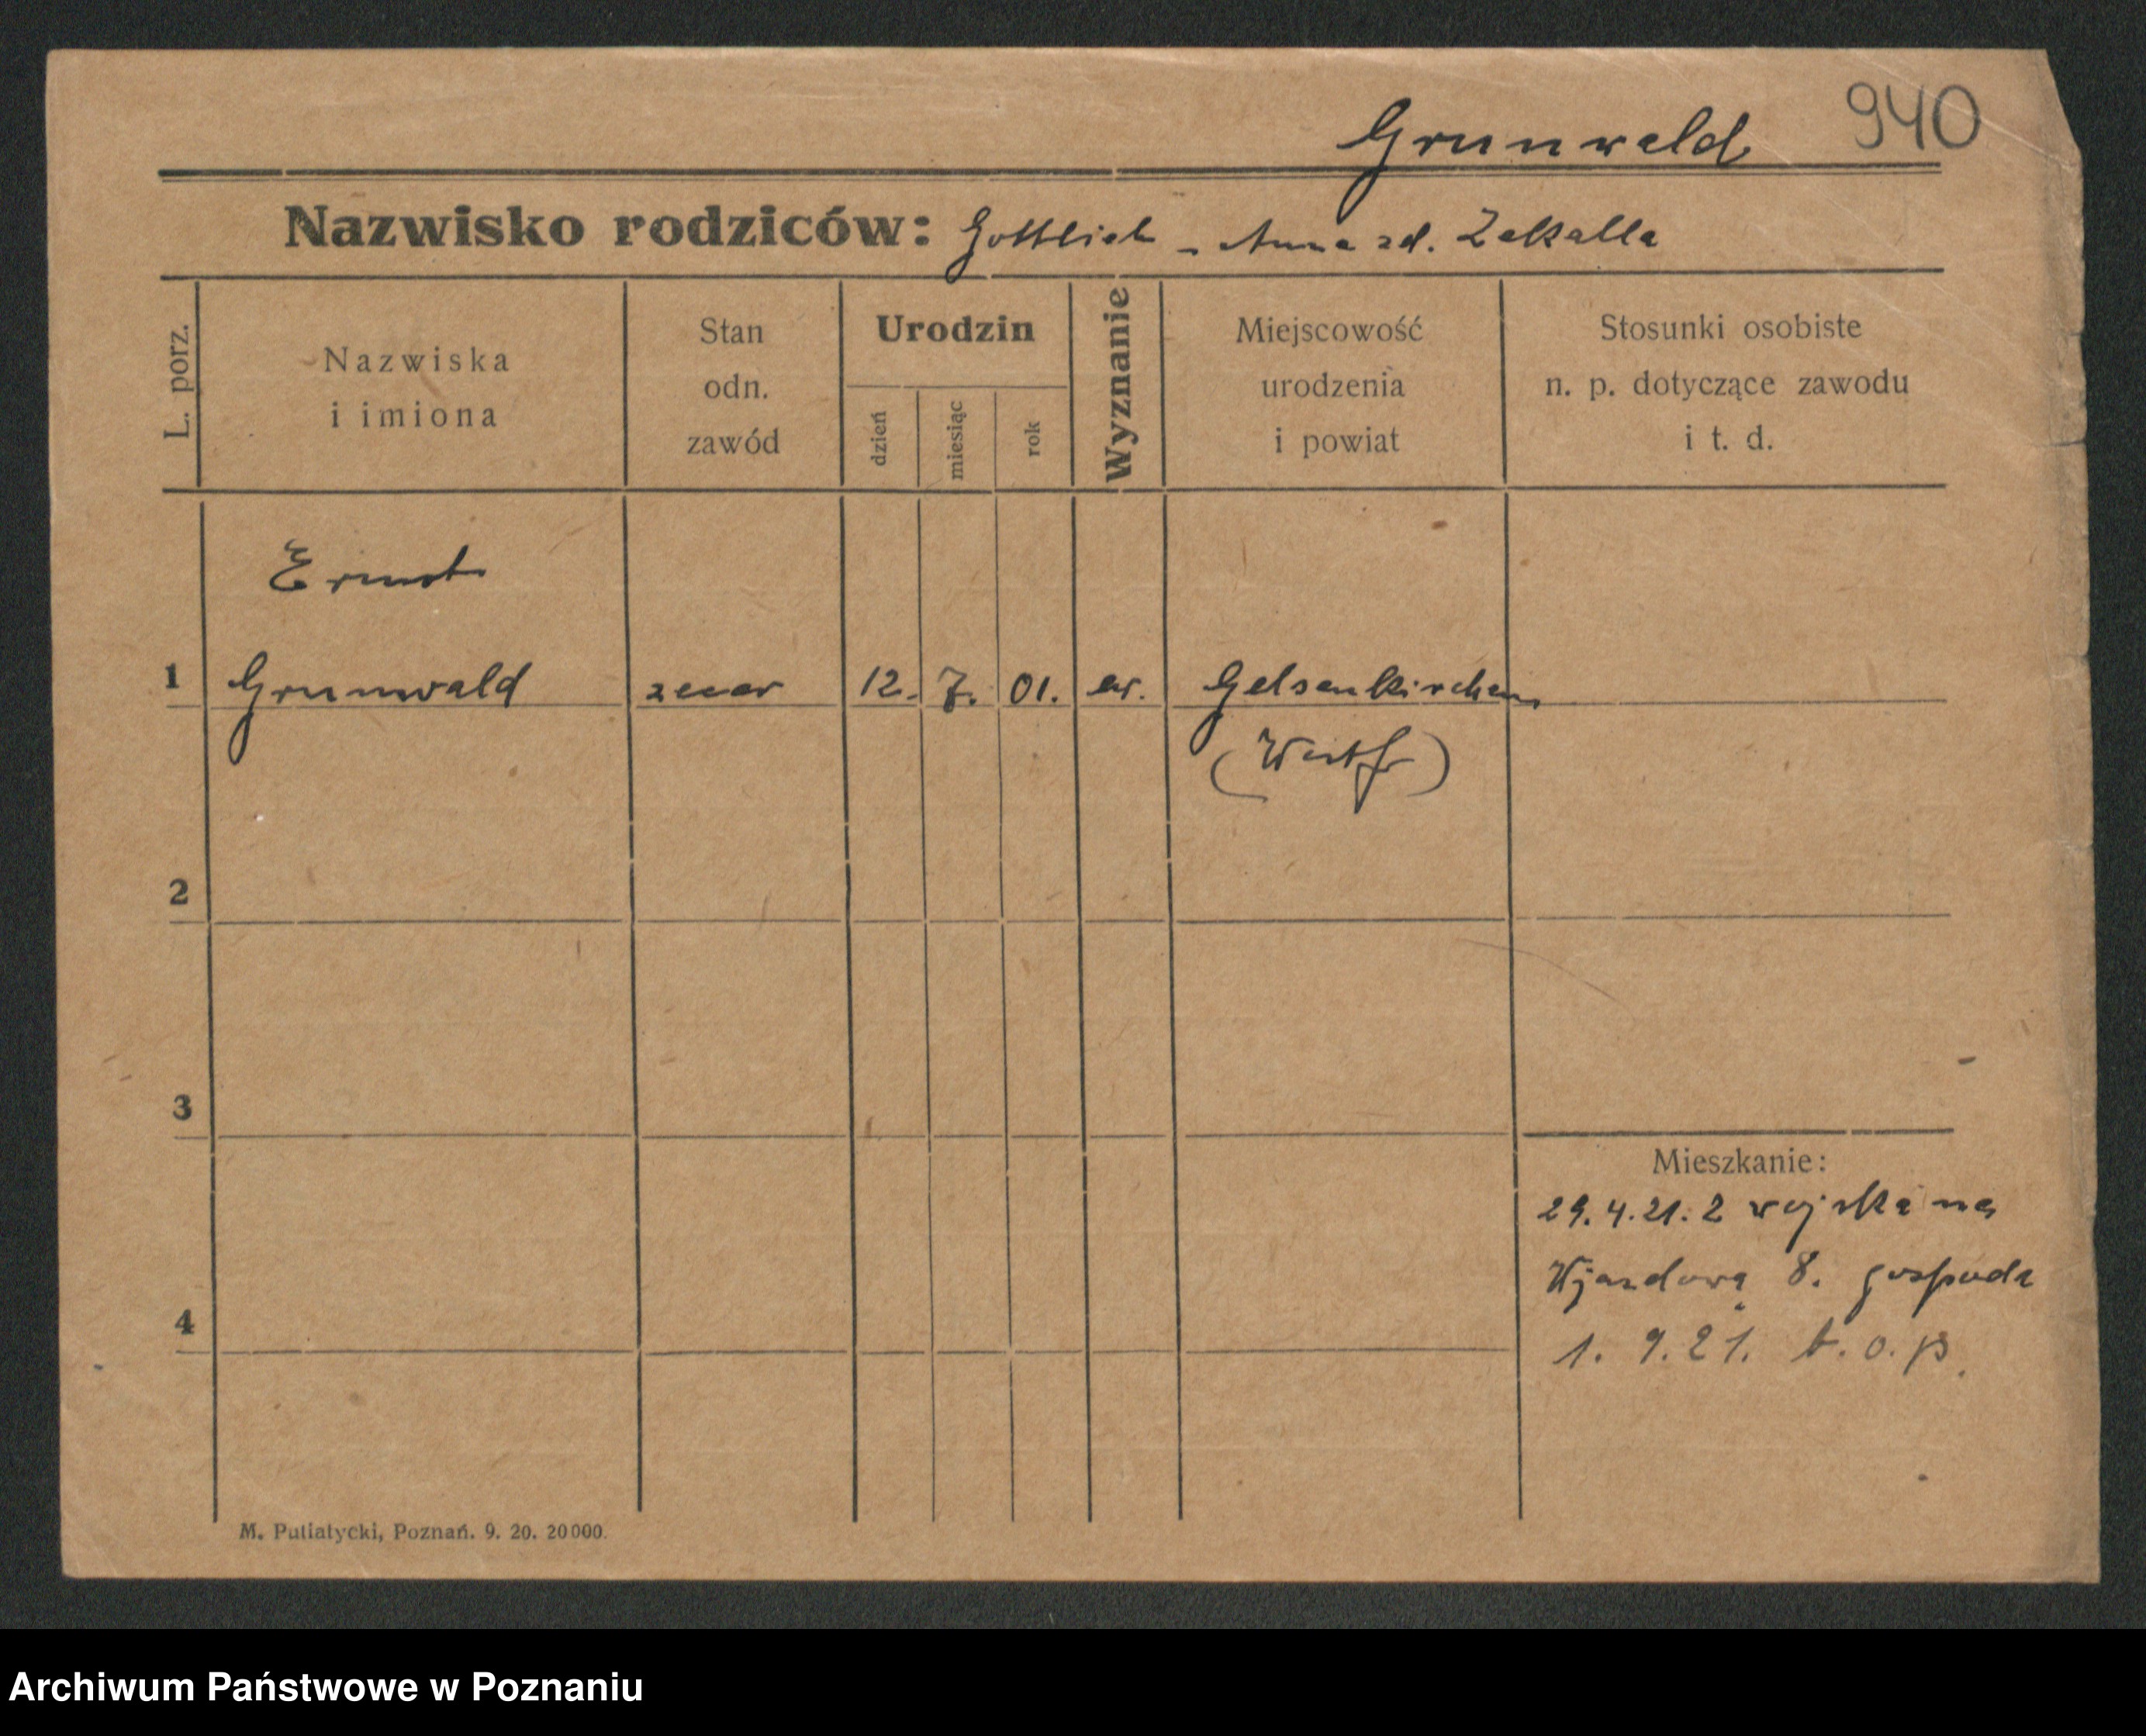 940
Grunwald
Nazwisko rodziców: Gottlieb - Anna zd. Zakalla
L. porz.
Nazwiska
i imiona
Stan
odn.
zawód
Urodzin
dzień
miesiąc
rok
Wyznanie
Miejscowość
urodzenia
i powiat
Stosunki osobiste
n. p. dotyczące zawodu
i t. d.
Ernst
1 Grunwald zecer 12. 7. 01. ew. Gelsenkirchen
(Westf)
2
3
4
Mieszkanie:
29.4.21. z wojska na
Wjazdową 8. gospoda
1. 9. 21. b. o. p.
M. Putiatycki, Poznań. 9. 20. 20000.
Archiwum Państwowe w Poznaniu